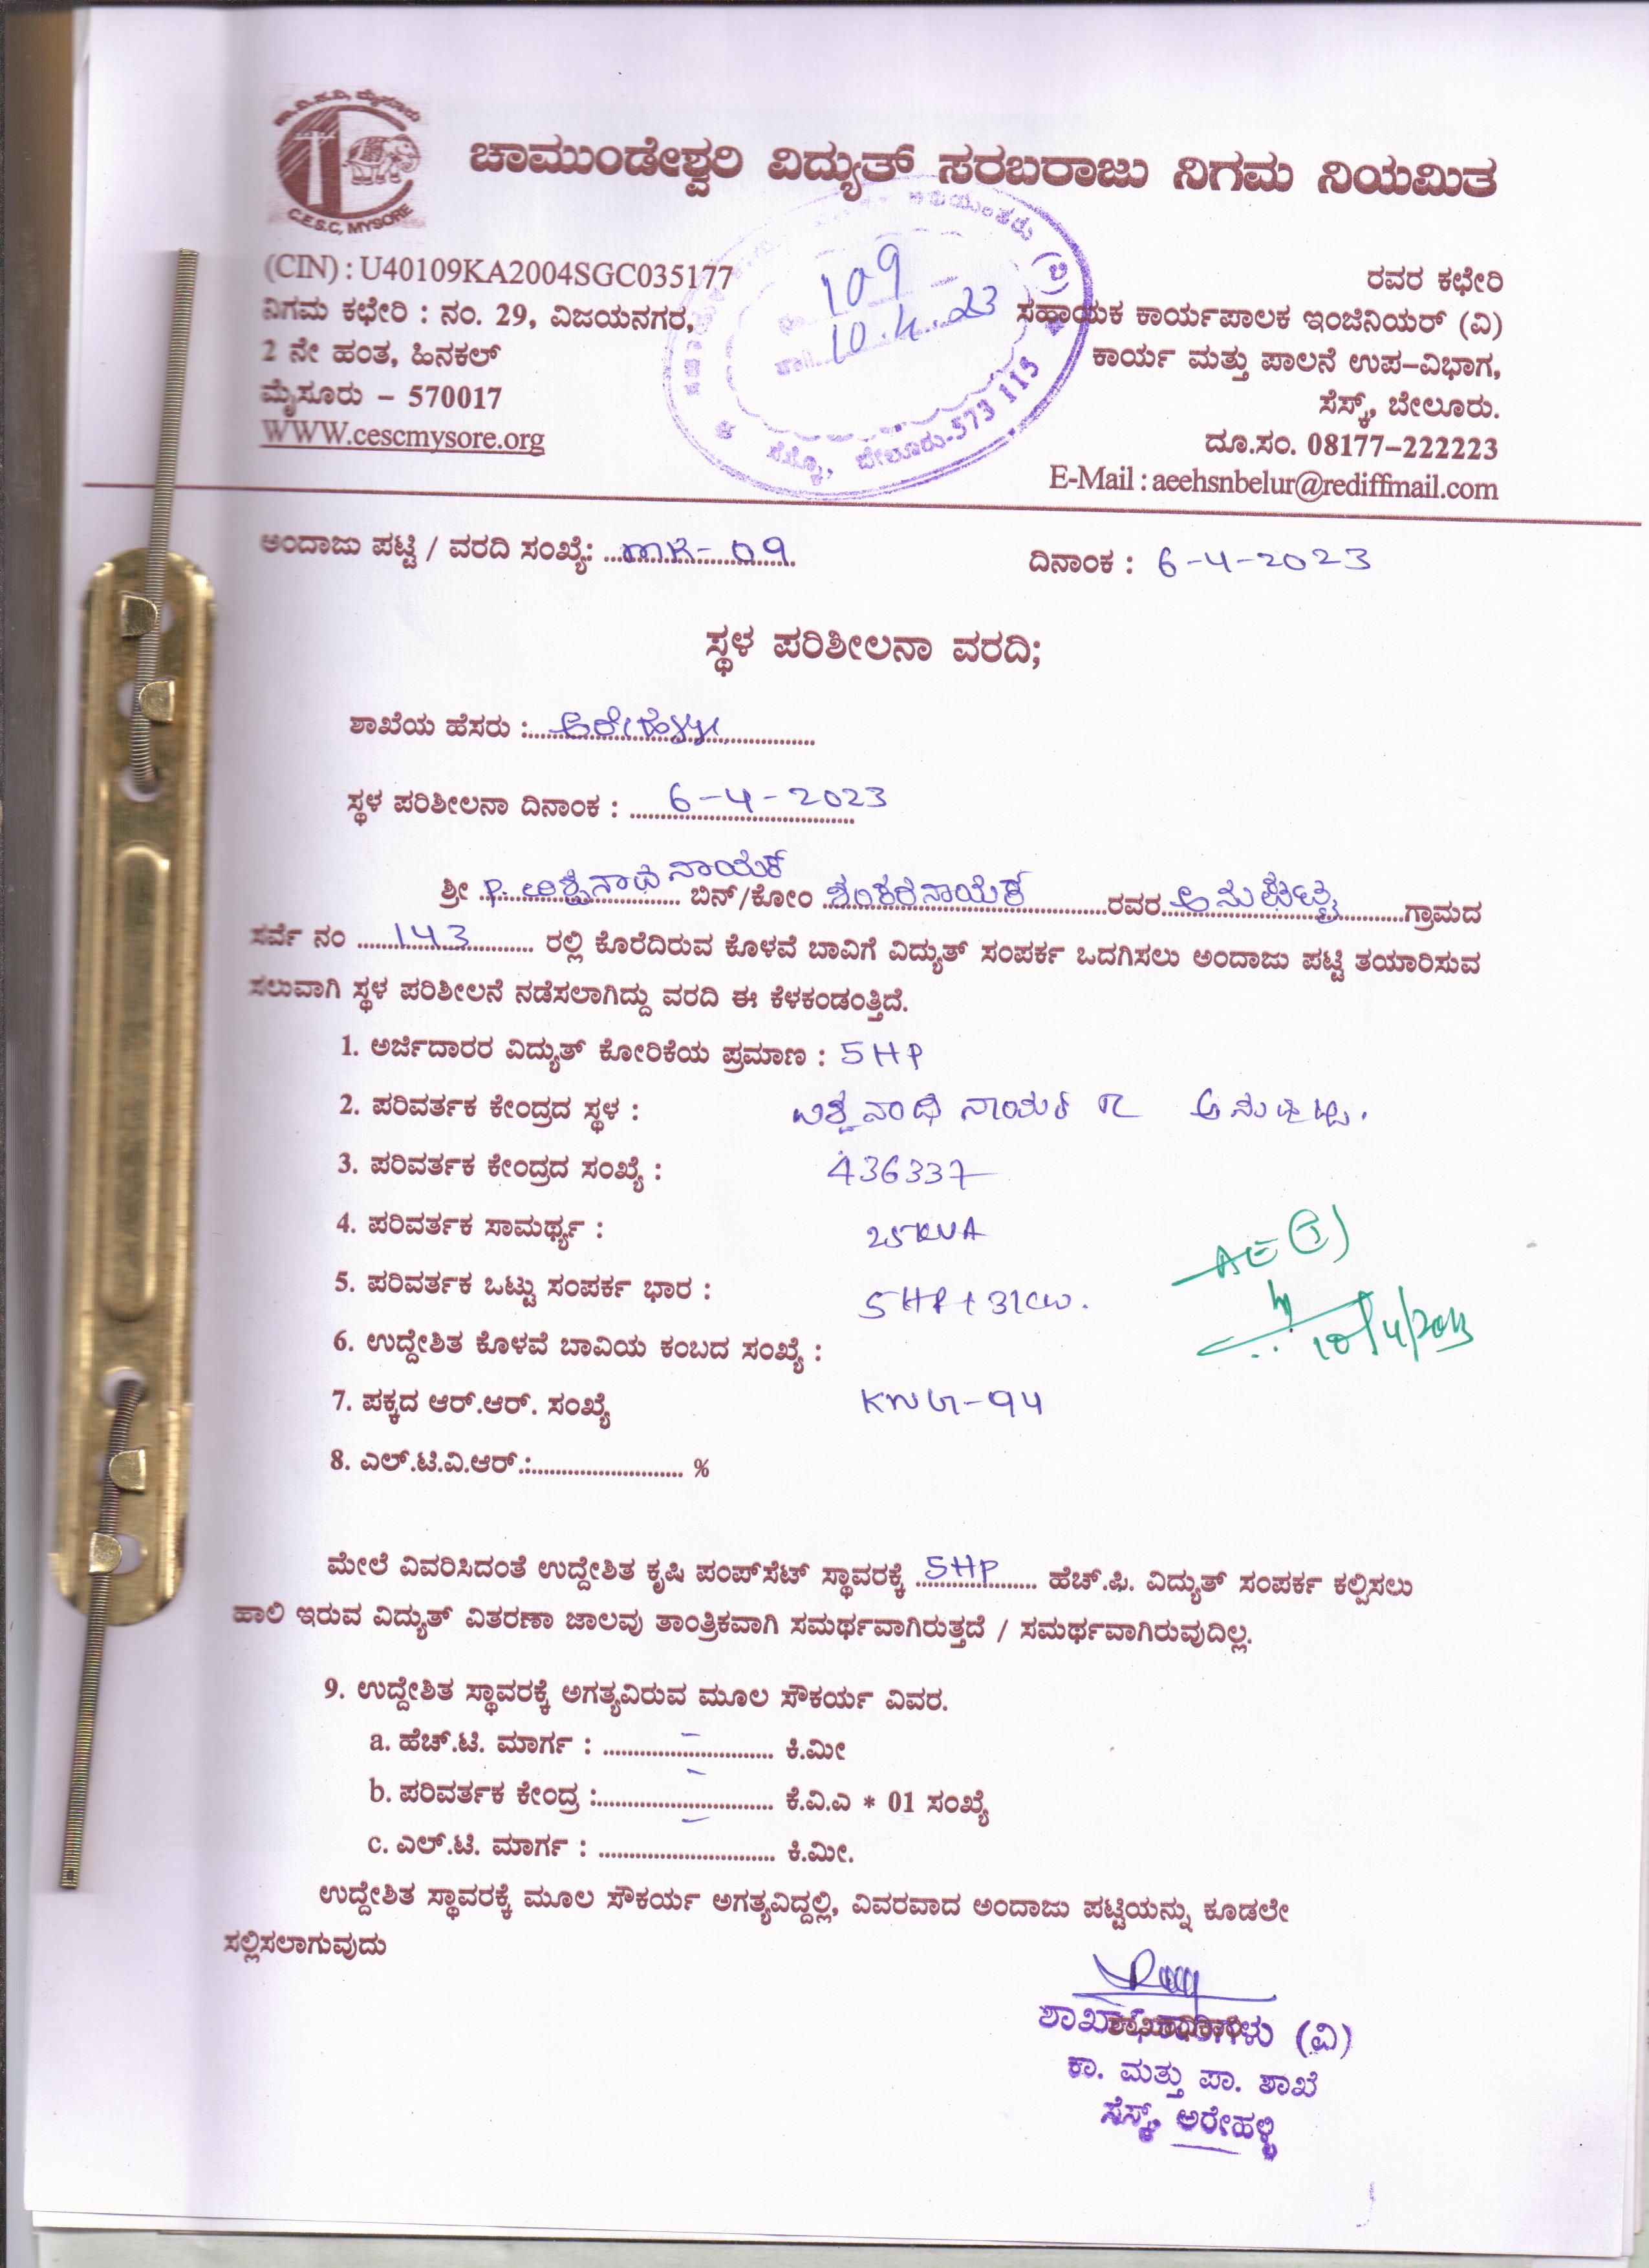 ಕಾ.ವಿ.ಸ.ನಿ, ಮೈಸೂರು
C.E.S.C, MYSORE
ಚಾಮುಂಡೇಶ್ವರಿ ವಿದ್ಯುತ್ ಸರಬರಾಜು ನಿಗಮ ನಿಯಮಿತ
(CIN) : U40109KA2004SGC035177
ನಿಗಮ ಕಛೇರಿ : ನಂ. 29, ವಿಜಯನಗರ,
2 ನೇ ಹಂತ, ಹಿನಕಲ್
ಮೈಸೂರು – 570017
WWW.cescmysore.org
109
10.4.23
ಸೆಸ್ಕಾಂ, ಬೇಲೂರು-573 115
ರವರ ಕಛೇರಿ
ಸಹಾಯಕ ಕಾರ್ಯಪಾಲಕ ಇಂಜಿನಿಯರ್ (ವಿ)
ಕಾರ್ಯ ಮತ್ತು ಪಾಲನೆ ಉಪ–ವಿಭಾಗ,
ಸೆಸ್ಕ್, ಬೇಲೂರು.
ದೂ.ಸಂ. 08177–222223
E-Mail : aeehsnbelur@rediffmail.com
ಅಂದಾಜು ಪಟ್ಟಿ / ವರದಿ ಸಂಖ್ಯೆ: MR-09 ದಿನಾಂಕ : 6-4-2023
ಸ್ಥಳ ಪರಿಶೀಲನಾ ವರದಿ;
ಶಾಖೆಯ ಹೆಸರು : ಅರೇಹಳ್ಳಿ
ಸ್ಥಳ ಪರಿಶೀಲನಾ ದಿನಾಂಕ : 6-4-2023
ಶ್ರೀ P. ನಾಯಕ್ ಬಿನ್/ಕೋಂ ಶಂಕರನಾಯಕ ರವರ ಗ್ರಾಮದ
ಸರ್ವೆ ನಂ 143 ರಲ್ಲಿ ಕೊರೆದಿರುವ ಕೊಳವೆ ಬಾವಿಗೆ ವಿದ್ಯುತ್ ಸಂಪರ್ಕ ಒದಗಿಸಲು ಅಂದಾಜು ಪಟ್ಟಿ ತಯಾರಿಸುವ
ಸಲುವಾಗಿ ಸ್ಥಳ ಪರಿಶೀಲನೆ ನಡೆಸಲಾಗಿದ್ದು ವರದಿ ಈ ಕೆಳಕಂಡಂತ್ತಿದೆ.
1. ಅರ್ಜಿದಾರರ ವಿದ್ಯುತ್ ಕೋರಿಕೆಯ ಪ್ರಮಾಣ : 5HP
2. ಪರಿವರ್ತಕ ಕೇಂದ್ರದ ಸ್ಥಳ :
3. ಪರಿವರ್ತಕ ಕೇಂದ್ರದ ಸಂಖ್ಯೆ : 436337
4. ಪರಿವರ್ತಕ ಸಾಮರ್ಥ್ಯ : 25KVA
5. ಪರಿವರ್ತಕ ಒಟ್ಟು ಸಂಪರ್ಕ ಭಾರ : 5HP+3KW.
6. ಉದ್ದೇಶಿತ ಕೊಳವೆ ಬಾವಿಯ ಕಂಬದ ಸಂಖ್ಯೆ :
AE (T)
10/4/2023
7. ಪಕ್ಕದ ಆರ್.ಆರ್. ಸಂಖ್ಯೆ
8. ಎಲ್.ಟಿ.ವಿ.ಆರ್.:.......................... %
ಮೇಲೆ ವಿವರಿಸಿದಂತೆ ಉದ್ದೇಶಿತ ಕೃಷಿ ಪಂಪ್‌ಸೆಟ್ ಸ್ಥಾವರಕ್ಕೆ 5HP ಹೆಚ್.ಪಿ. ವಿದ್ಯುತ್ ಸಂಪರ್ಕ ಕಲ್ಪಿಸಲು
ಹಾಲಿ ಇರುವ ವಿದ್ಯುತ್ ವಿತರಣಾ ಜಾಲವು ತಾಂತ್ರಿಕವಾಗಿ ಸಮರ್ಥವಾಗಿರುತ್ತದೆ / ಸಮರ್ಥವಾಗಿರುವುದಿಲ್ಲ.
9. ಉದ್ದೇಶಿತ ಸ್ಥಾವರಕ್ಕೆ ಅಗತ್ಯವಿರುವ ಮೂಲ ಸೌಕರ್ಯ ವಿವರ.
a. ಹೆಚ್.ಟಿ. ಮಾರ್ಗ : – ಕಿ.ಮೀ
b. ಪರಿವರ್ತಕ ಕೇಂದ್ರ : – ಕೆ.ವಿ.ಎ * 01 ಸಂಖ್ಯೆ
c. ಎಲ್.ಟಿ. ಮಾರ್ಗ : – ಕಿ.ಮೀ.
ಉದ್ದೇಶಿತ ಸ್ಥಾವರಕ್ಕೆ ಮೂಲ ಸೌಕರ್ಯ ಅಗತ್ಯವಿದ್ದಲ್ಲಿ, ವಿವರವಾದ ಅಂದಾಜು ಪಟ್ಟಿಯನ್ನು ಕೂಡಲೇ
ಸಲ್ಲಿಸಲಾಗುವುದು
ಶಾಖಾಧಿಕಾರಿಗಳು (ವಿ)
ಕಾ. ಮತ್ತು ಪಾ. ಶಾಖೆ
ಸೆಸ್ಕ್, ಅರೇಹಳ್ಳಿ